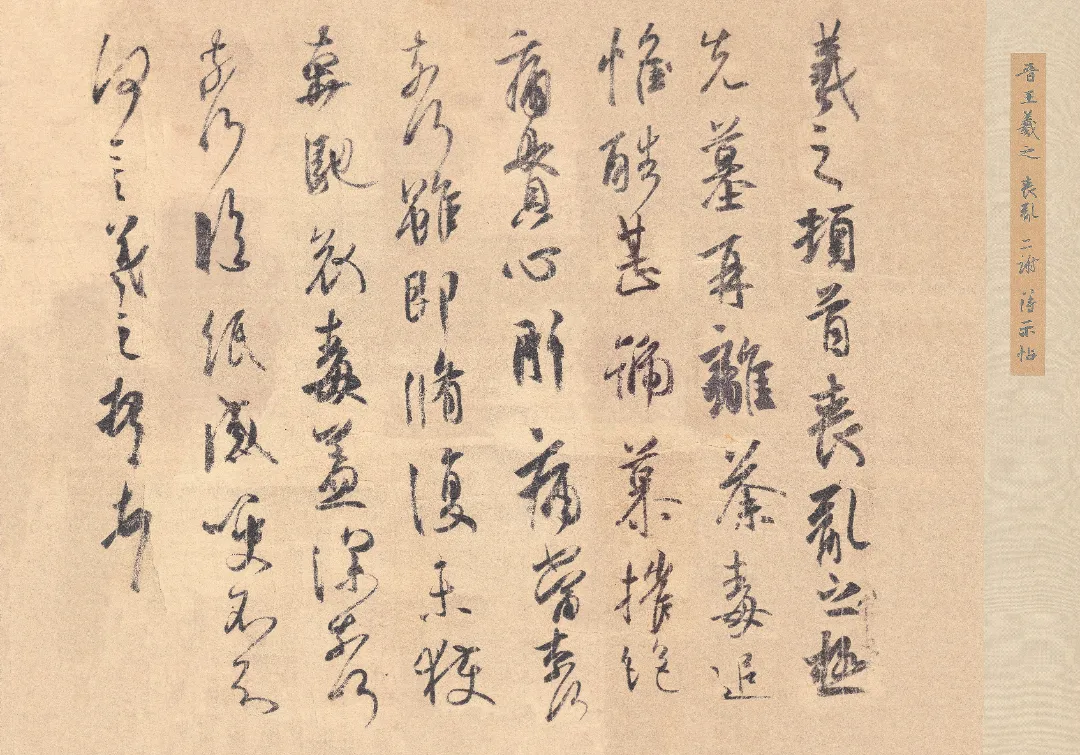 晋王羲之 丧乱 二谢 得示帖
羲之頓首喪亂之極
先墓再離荼毒追
惟酷甚號慕摧絕
痛貫心肝痛當奈何
奈何雖即脩復未獲
奔馳哀毒益深奈何
奈何臨紙感哽不知
何言羲之頓首